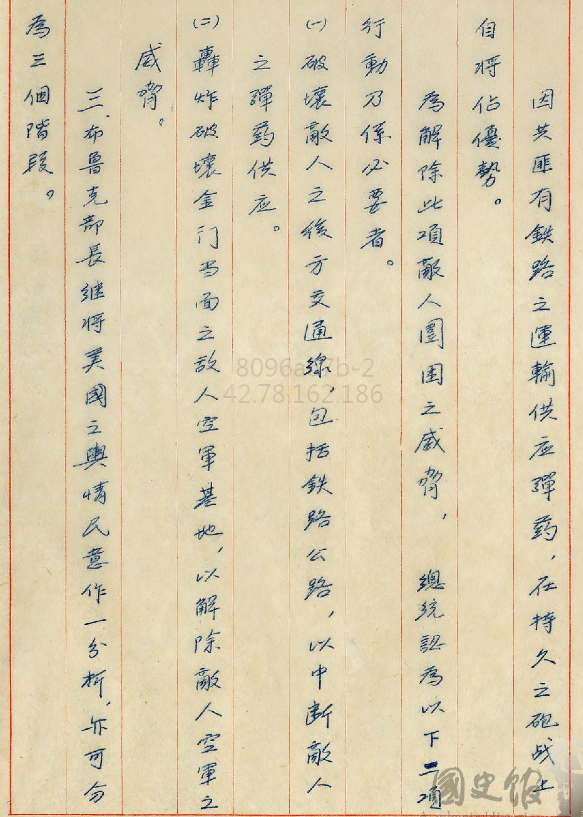 因共匪有鉄路之運輸供应彈葯，在持久之砲战上
自将佔優勢。
為解除此項敵人圍困之威脅，總統認為以下二項
行動乃係必要者。
㈠破壞敵人之後方交通線，包括鉄路公路，以中断敵人
之彈葯供应。
㈡轟炸破壞金门当面之敌人空軍基地，以解除敵人空軍之
威脅。
三、布魯克部長继将美國之輿情民意作一分析，亦可分
為三個階段。
8096a
b-2
42.78.162.186
國史館